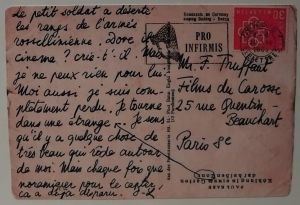 Le petit soldat a déserté
les rangs de l'armée
rossellinienne. Dore
cinema? crie-t'-il. Mais
je ne peux rien pour lui.
Moi aussi je suis com-
plètement perdu. Je tourne
dans une étrange. Je sens
qu'il y a quelque chose de
très beau qui rôde autour
de moi. Mais chaque fois que
pour le capter,
ça a déjà disparu.
PRO
INFIRMIS
HELVETIA
M. F. Truffaut
Films du Carosse
25 rue Quentin-
Beauchart
Paris 8e
PAUL KLEE